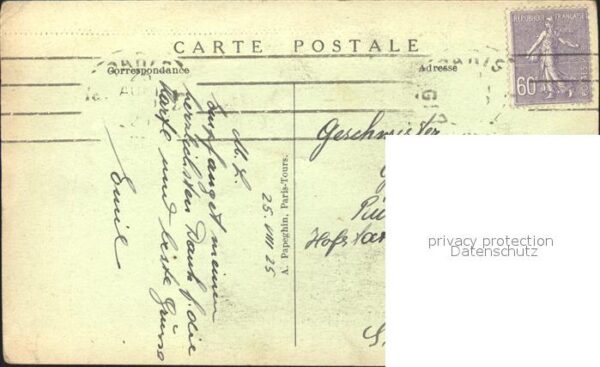 CARTE POSTALE
Correspondance
Adresse
RÉPUBLIQUE FRANÇAISE
POSTES
60
PARIS
M. L.
25. VIII 25
Empfanget meinen
herzlichsten Dank f. die
Karte und beste Grüsse
Emil
A. Papeghin, Paris-Tours.
Geschwister
privacy protection
Datenschutz